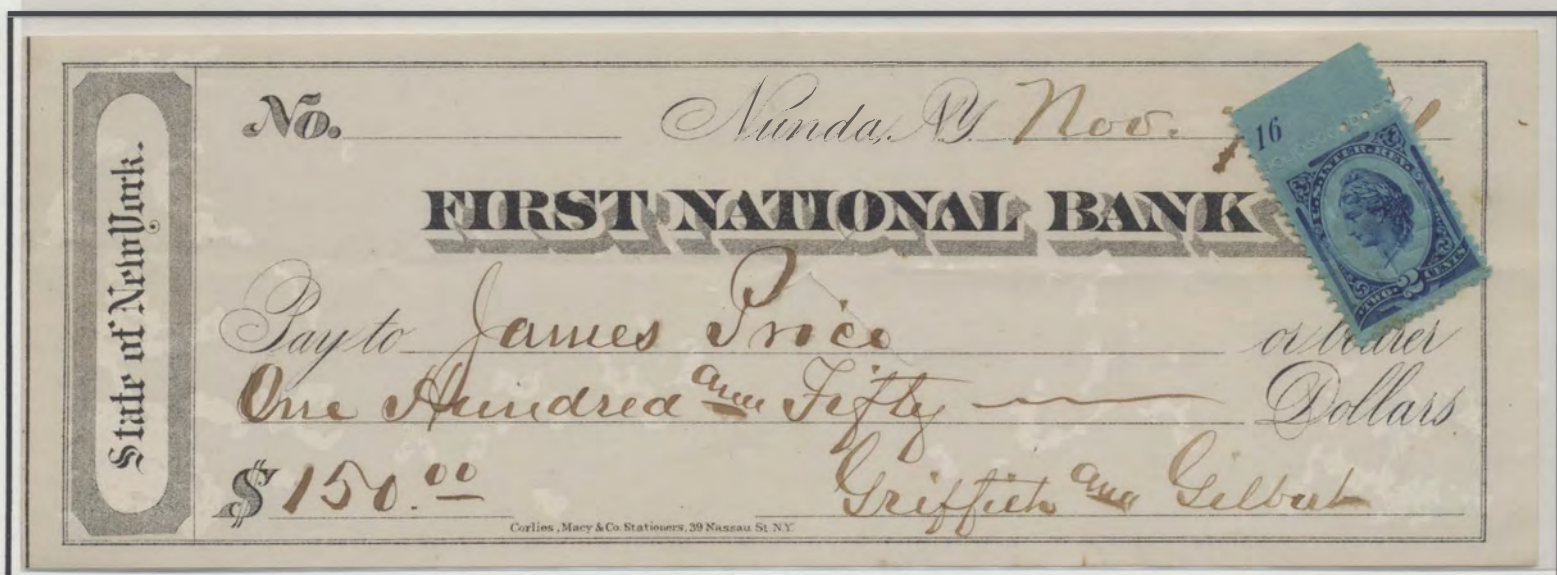 State of New York.
No. Nunda, NY Nov.
16
FIRST NATIONAL BANK
U.S. INTER. REV.
TWO 2 CENTS
Pay to James Price or bearer
One Hundred and Fifty Dollars
$ 150.00 Griffith and Gilbert
Corlies, Macy & Co. Stationers, 39 Nassau St. N.Y.